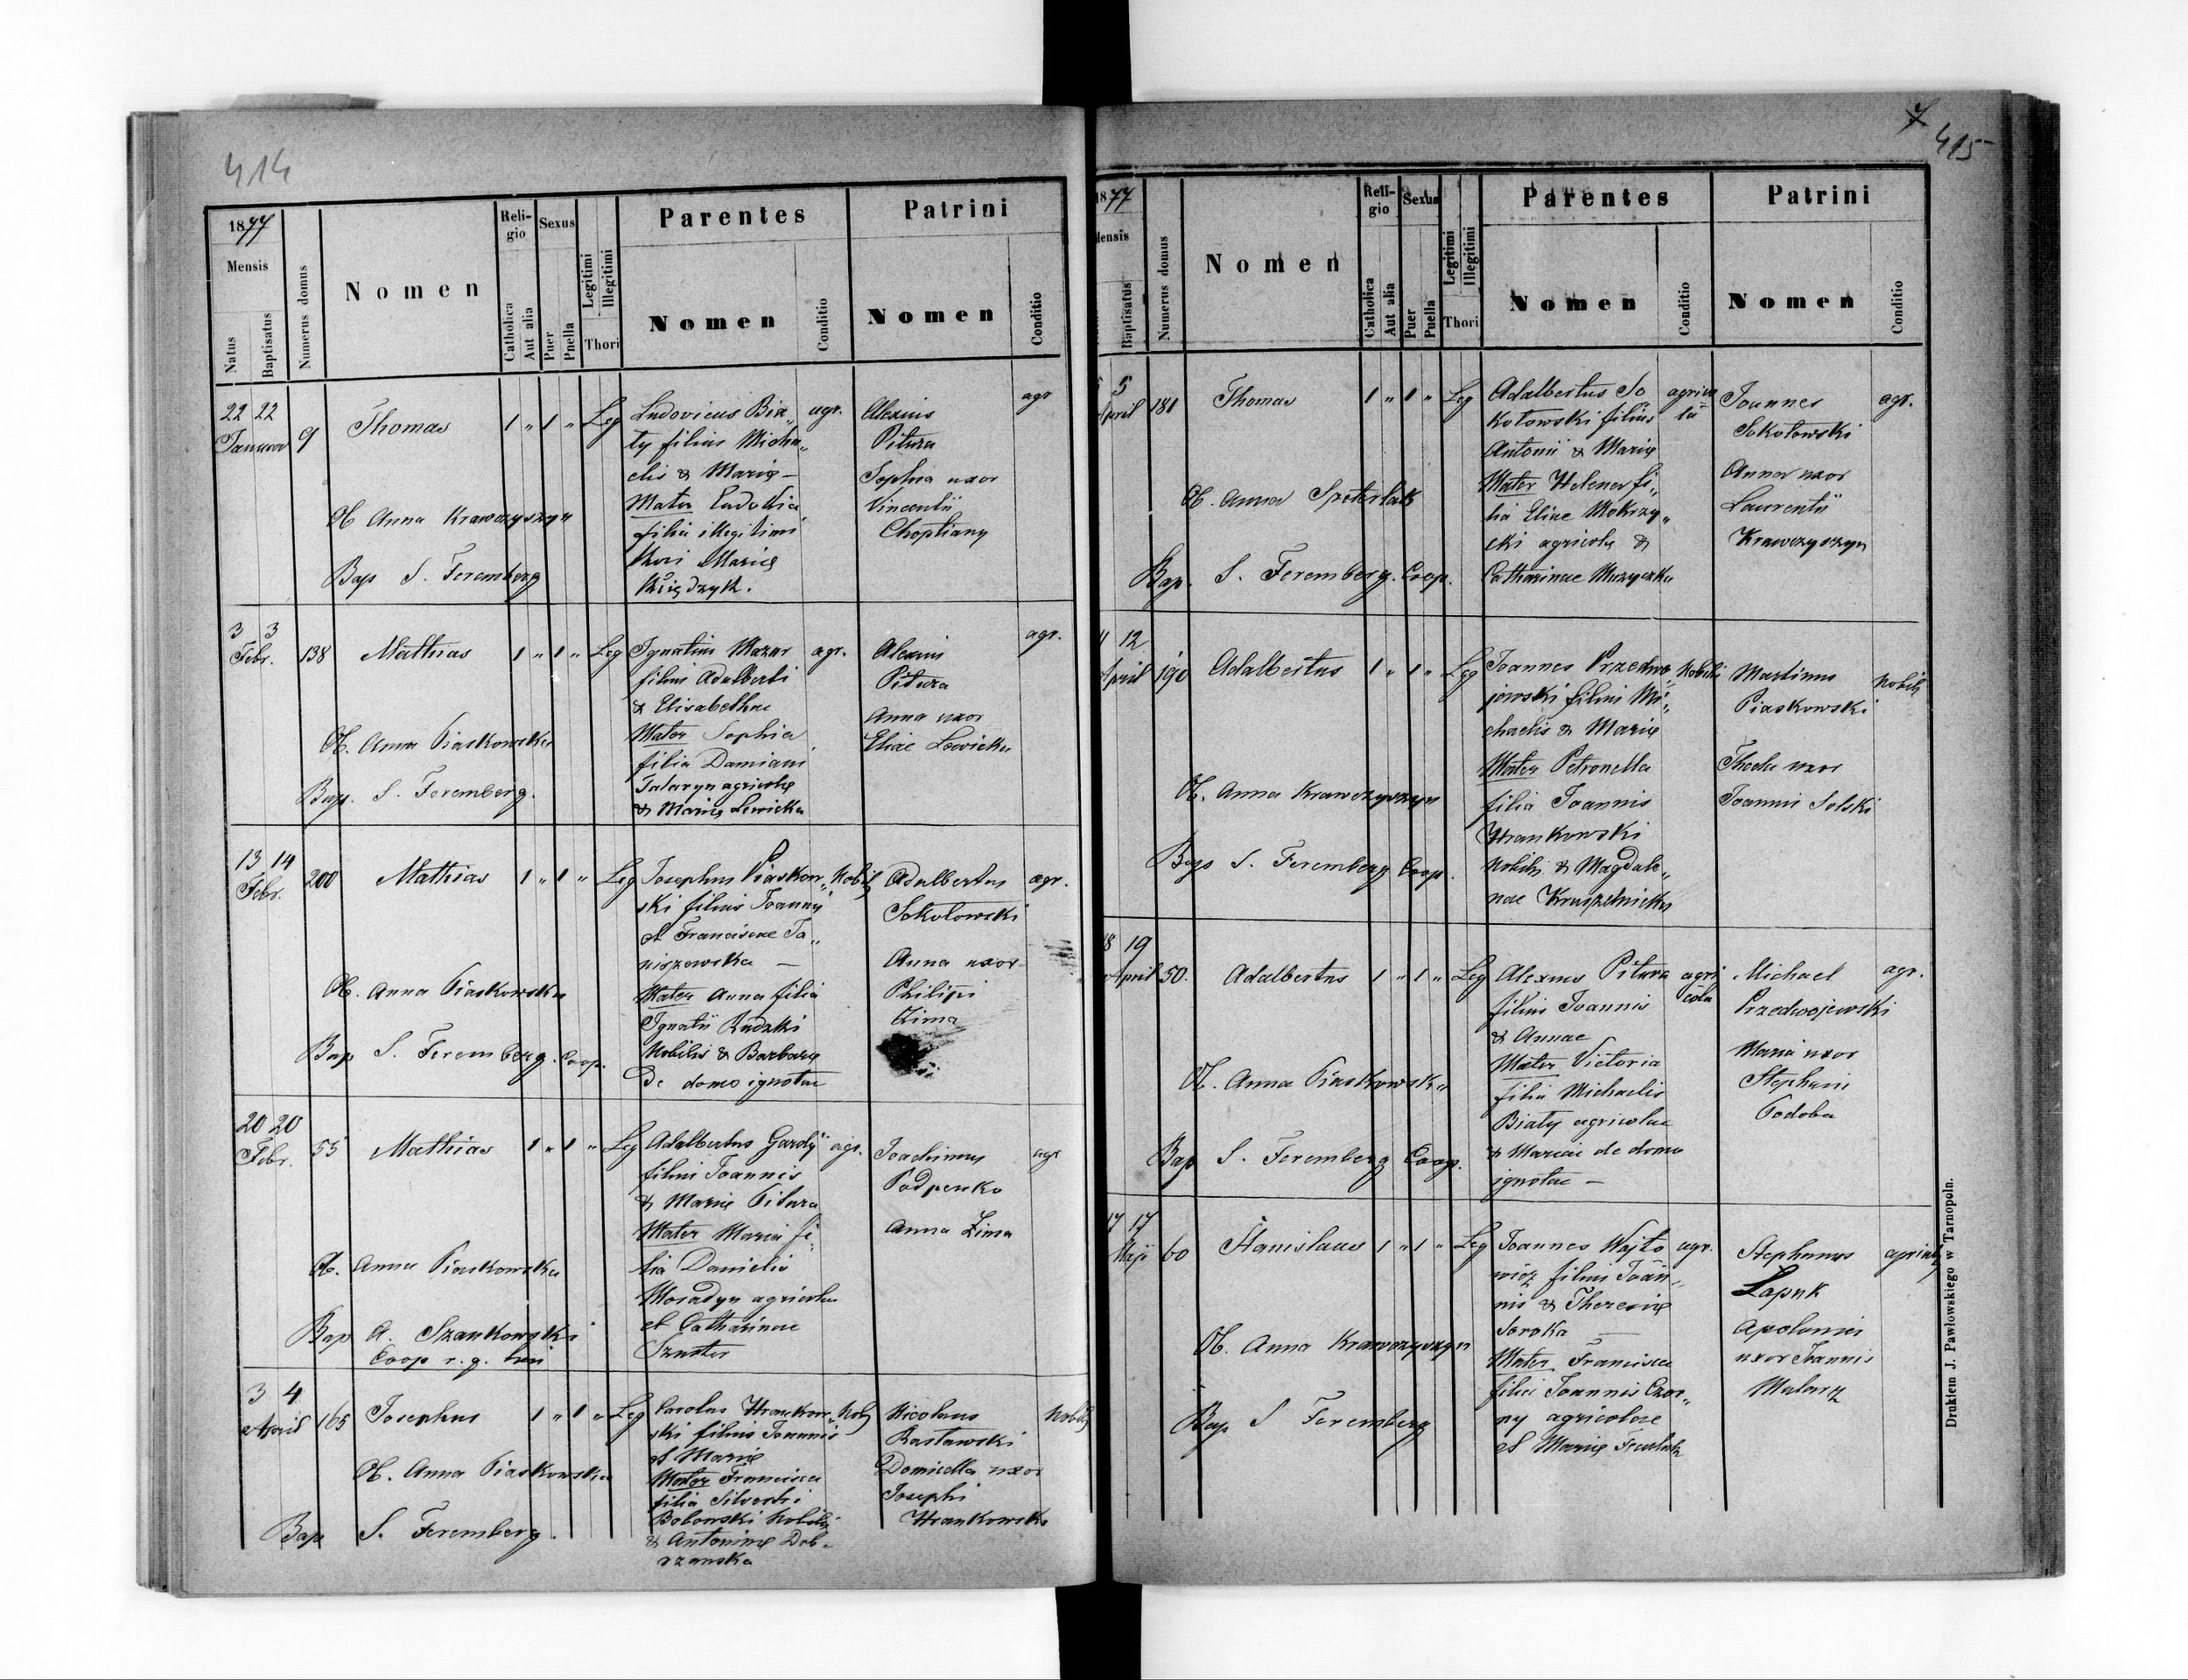 414
1877
Mensis
Natus
Baptisatus
Numerus domus
Nomen
Religio
Catholica
Aut alia
Sexus
Puer
Puella
Legitimi
Illegitimi
Thori
Parentes
Nomen
Conditio
Patrini
Nomen
Conditio
22 22
9
Thomas
1 „ 1 „ Leg
Ob Anna Krawczyszyn
Bap S. Feremberg
Ludovicus Bia„ agr.
ty filius Micha„
elis & Marię –
Mater
filia illegitimi
thori Marię
Księdzyk.
Alexius agr
Pitura
Sophia uxor
Vincentii
Choptiany
3 3
Febr. 138 Mathias 1 „ 1 „ Leg
Ob. Anna Piaskowska
Bap. S. Feremberg.
Ignatius Mazur agr.
filius Adalberti
& Elisabethae
Mater Sophia
filia Damiani
Tataryn agricolę
& Marię Lewicka
Alexius agr.
Pitura
Anna uxor
Eliae Lewicka
13 14
Febr. 200 Mathias 1 „ 1 „ Leg
Ob. Anna Piaskowska
Bap S. Feremberg. Coop.
Josephus Piaskow„ Nobil
ski filius Joannis
et Franciscae Ja„
niszewska –
Mater Anna filia
Ignatii Rudzki
Nobilis & Barbarę
de domo ignotae
Adalbertus agr.
Sokołowski
Anna uxor
Philippi
Zima
20 20
Febr. 55 Mathias 1 „ 1 „ Leg
Ob. Anna Piaskowska
Bap A. Szankowski
Coop r. g.
Adalbertus agr.
filius Joannis
& Marię Pitura
Mater Maria fi„
lia Danielis
agricolae
et Catharinae
Szuster
Joachimus agr
Podpenko
Anna Zima
3 4
April 165 Josephus 1 „ 1 „ Leg
Ob. Anna Piaskowska
Bap S. Feremberg.
Carolus Hrankow„ Nob
ski filius Joannis
et Marię
Mater Francisca
filia Silvestri
Bobowski Nobilis
& Antoninę Dob„
rzanska
Nicolaus Nobilis
Rastawski
Domicella uxor
Josephi
Hrankowski
7
415
1877
Mensis
Baptisatus
Numerus domus
Nomen
Religio
Catholica
Aut alia
Sexus
Puer
Puella
Legitimi
Illegitimi
Thori
Parentes
Nomen
Conditio
Patrini
Nomen
Conditio
5 5
April 181 Thomas 1 „ 1 „ Leg
Ob. Anna
Bap. S. Feremberg. Coop.
Adalbertus So agrico
kołowski filius la
Antonii & Marię
Mater Helena fi„
lia Eliae Mokrzy„
cki agricolę &
Catharinae Muzyczka
Joannes agr.
Sokołowski
Anna uxor
Laurentii
Krawczyszyn
11 12
April 190 Adalbertus 1 „ 1 „ Leg
Ob. Anna Krawczyszyn
Bap S. Feremberg Coop.
Joannes Przedwo Nobilis
jewski filius Mi„
chaelis & Marię
Mater Petronella
filia Joannis
Hrankowski
Nobilis & Magdale„
nae Kruszelnicka
Martinus Nobilis
Piaskowski
Thecla uxor
Joannis Solski
18 19
April 50. Adalbertus 1 „ 1 „ Leg
Ob. Anna Piaskowska
Bap S. Feremberg Coop.
Alexius Pitura agri
filius Joannis cola
& Annae
Mater Victoria
filia Michaelis
Biały agricolae
& Mariae de domo
ignotae –
Michael agr.
Przedwojewski
Maria uxor
Stephani
Podoba
17 17
Maji 60 Stanislaus 1 „ 1 „ Leg
Ob. Anna Krawczyszyn
Bap S Feremberg
Joannes Wojto agr.
wicz filius Joan„
nis & Theresię
Soroka –
Mater Francisca
filia Joannis Czar„
ny agricolae
et Marię
Stephanus
Łapuk
Apolonia
uxor Joannis
Malarz
Drukiem J. Pawłowskiego w Tarnopoln.